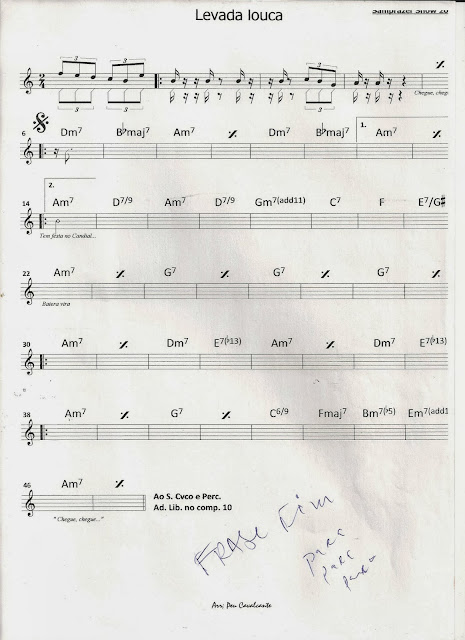 Levada louca
Samprazer Show 20
3 3 3 3 3
Chegue, cheg
6 Dm7 B♭maj7 Am7 Dm7 B♭maj7 1. Am7
2.
14 Am7 D7/9 Am7 D7/9 Gm7(add11) C7 F E7/G#
Tem festa no Candial...
22 Am7 G7 G7 G7
Baiera vira
30 Am7 Dm7 E7(♭13) Am7 Dm7 E7(♭13)
38 Am7 G7 C6/9 Fmaj7 Bm7(♭5) Em7(add1
46 Am7
Ao S. Cvco e Perc.
Ad. Lib. no comp. 10
" Chegue, chegue..."
FRASE
Arr; Peu Cavalcante